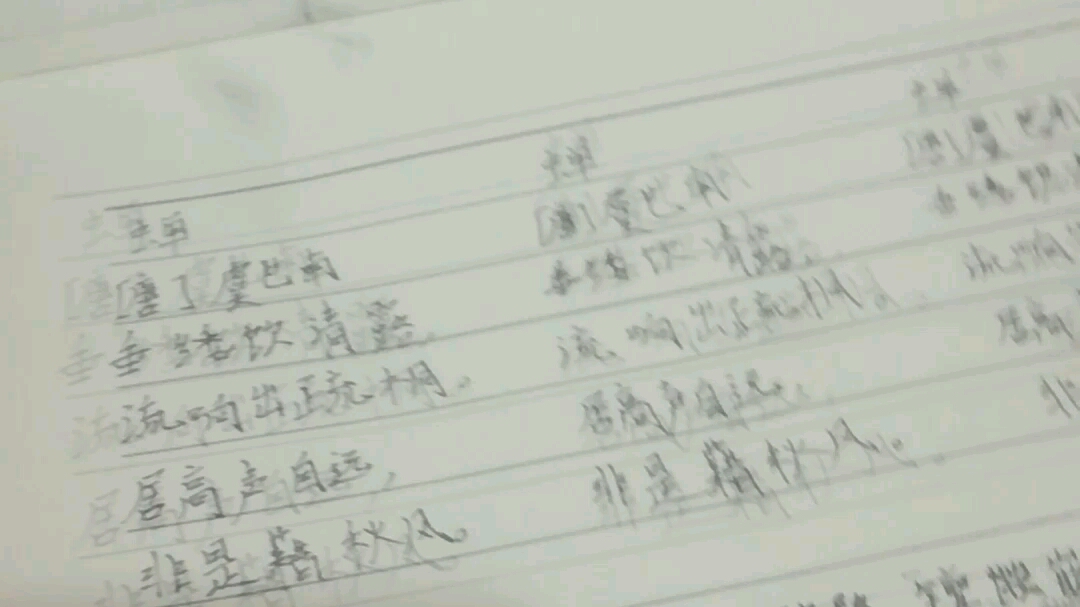 蝉
[唐]虞世南
垂緌饮清露,
流响出疏桐。
居高声自远,
非是藉秋风。
蝉
[唐]虞世南
垂緌饮清露,
流响出疏桐。
居高声自远,
非是藉秋风。
蝉
[唐]虞世南
垂緌饮清
流响
居高
非